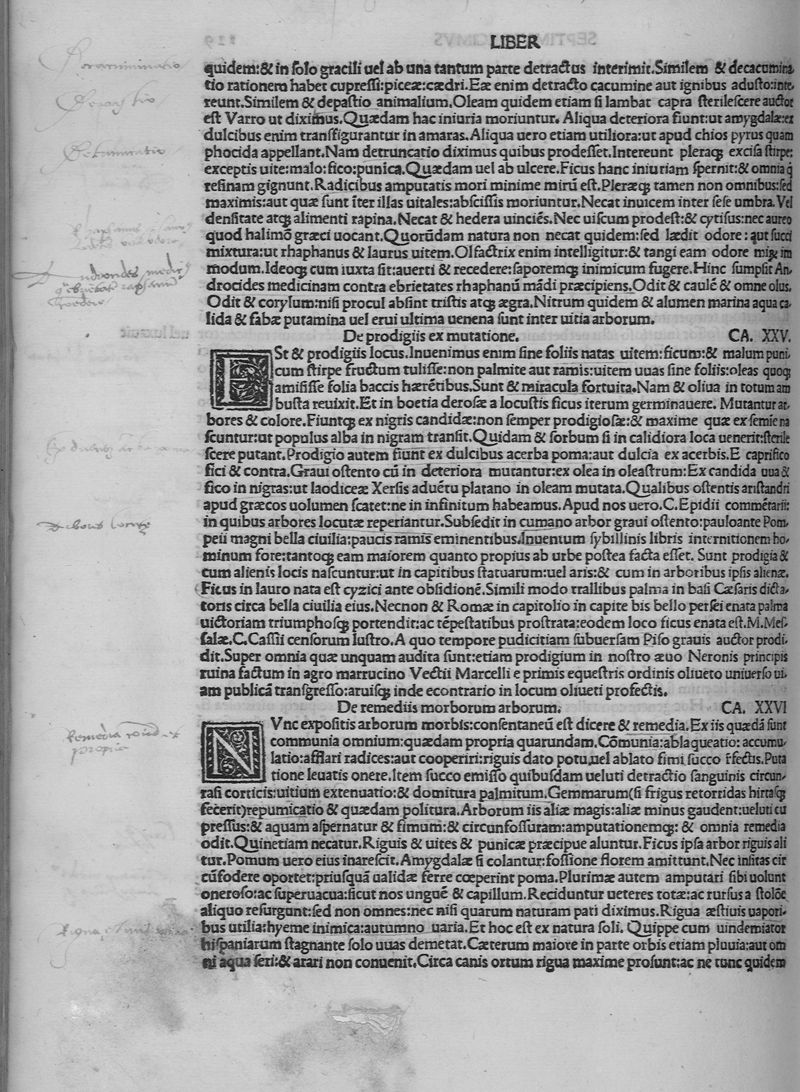 LIBER
quidem:& in solo gracili uel ab una tantum parte detractus interimit.Similem & decacumina
tio rationem habet cupressi:piceæ:cædri.Eæ enim detracto cacumine aut ignibus adusto:inte,
reunt.Similem & depastio animalium.Oleam quidem etiam si lambat capra sterilescere auctor
est Varro ut diximus.Quædam hac iniuria moriuntur. Aliqua deteriora fiunt:ut amygdalæ:ex
dulcibus enim transfigurantur in amaras.Aliqua uero etiam utiliora:ut apud chios pyrus quam
phocida appellant.Nam detruncatio diximus quibus prodesset.Intereunt pleraq; excisa stirpe:
exceptis uite:malo:fico:punica.Quædam uel ab ulcere.Ficus hanc iniuriam spernit:& omnia q̃
resinam gignunt.Radicibus amputatis mori minime mirũ est.Pleræq; tamen non omnibus:sed
maximis:aut quæ sunt ĩter illas uitales:abscissis moriuntur.Necat inuicem inter sese umbra.Vel
densitate atq; alimenti rapina.Necat & hedera uinciẽs.Nec uiscum prodest:& cytisus:nec aureo
quod halimõ græci uocant.Quorũdam natura non necat quidem:sed lædit odore:aut succi
mixtura:ut rhaphanus & laurus uitem.Olfactrix enim intelligitur:& tangi eam odore mirũ im
modum.Ideoq; cum iuxta sit:auerti & recedere:saporemq; inimicum fugere.Hinc sumpsit An,
drocides medicinam contra ebrietates rhaphanũ mãdi præcipiens.Odit & caulẽ & omne olus.
Odit & corylum:nisi procul absint tristis atq; ægra.Nitrum quidem & alumen marina aqua ca,
lida & fabæ putamina uel erui ultima uenena sunt inter uitia arborum.
De prodigiis ex mutatione. CA. XXV.
ESt & prodigiis locus.Inuenimus enim sine foliis natas uitem:ficum:& malum puni,
cum stirpe fructum tulisse:non palmite aut ramis:uitem uuas sine foliis:oleas quoq;
amisisse folia baccis hærẽtibus.Sunt & miracula fortuita.Nam & oliua in totum am
busta reuixit.Et in boetia derosæ a locustis ficus iterum germinauere. Mutantur ar,
bores & colore.Fiuntq; ex nigris candidæ:non semper prodigiosæ:& maxime quæ ex semine na
scuntur:ut populus alba in nigram transit.Quidam & sorbum si in calidiora loca uenerit:sterile
scere putant.Prodigio autem fiunt ex dulcibus acerba poma:aut dulcia ex acerbis.E caprifico
fici & contra.Graui ostento cũ in deteriora mutantur:ex olea in oleastrum:Ex candida uua &
fico in nigras:ut laodiceæ Xersis aduẽtu platano in oleam mutata.Qualibus ostentis aristandri
apud græcos uolumen scatet:ne in infinitum habeamus.Apud nos uero.C.Epidii commẽtarii:
in quibus arbores locutæ reperiantur.Subsedit in cumano arbor graui ostento:pauloante Pom,
peii magni bella ciuilia:paucis ramis eminentibus.Inuentum sybillinis libris internitionem ho,
minum fore:tantoq; eam maiorem quanto propius ab urbe postea facta esset. Sunt prodigia &
cum alienis locis nascuntur:ut in capitibus statuarum:uel aris:& cum in arboribus ipsis alienæ.
Ficus in lauro nata est cyzici ante obsidionẽ.Simili modo trallibus palma in basi Cæsaris dicta,
toris circa bella ciuilia eius.Necnon & Romæ in capitolio in capite bis bello persei enata palma
uictoriam triumphosq; portendit:ac tẽpestatibus prostrata:eodem loco ficus enata est.M.Mes,
salæ.C.Cassii censorum lustro.A quo tempore pudicitiam subuersam Piso grauis auctor prodi,
dit.Super omnia quæ unquam audita sunt:etiam prodigium in nostro æuo Neronis principis
ruina factum in agro marrucino Vectii Marcelli e primis equestris ordinis oliueto uniuerso ui,
am publicã transgresso:aruisq; inde econtrario in locum oliueti profectis.
De remediis morborum arborum. CA. XXVI
NVnc expositis arborum morbis:consentaneũ est dicere & remedia.Ex iis quædã sunt
communia omnium:quædam propria quarundam.Cõmunia:ablaqueatio: accumu,
latio:afflari radices:aut cooperiri:riguis dato potu,uel ablato fimi succo r̃fectis.Puta
tione leuatis onere.Item succo emisso quibusdam ueluti detractio sanguinis circun,
rasi corticis:uitium extenuatio:& domitura palmitum.Gemmarum(si frigus retorridas hirtasq;
fecerit)repumicatio & quædam politura.Arborum iis aliæ magis:aliæ minus gaudent:ueluti cu
pressus:& aquam aspernatur & fimum:& circunfossuram:amputationemq;: & omnia remedia
odit.Quinetiam necatur.Riguis & uites & punicæ præcipue aluntur.Ficus ipsa arbor riguis ali
tur.Pomum uero eius inarescit.Amygdalæ si colantur:fossione florem amittunt.Nec insitas cir
cũfodere oportet:priusquã ualidæ ferre cœperint poma.Plurimæ autem amputari sibi uolunt
onerosa:ac superuacua:sicut nos unguẽ & capillum.Reciduntur ueteres totæ:ac rursus a stolõe
aliquo resurgunt:sed non omnes:nec nisi quarum naturam pati diximus.Rigua æstiuis uapori,
bus utilia:hyeme inimica:autumno uaria.Et hoc est ex natura soli. Quippe cum uindemiator
hispaniarum stagnante solo uuas demetat.Cæterum maiore in parte orbis etiam pluuia:aut om
ni aqua seri:& arari non conuenit.Circa canis ortum rigua maxime prosunt:ac ne tunc quidem